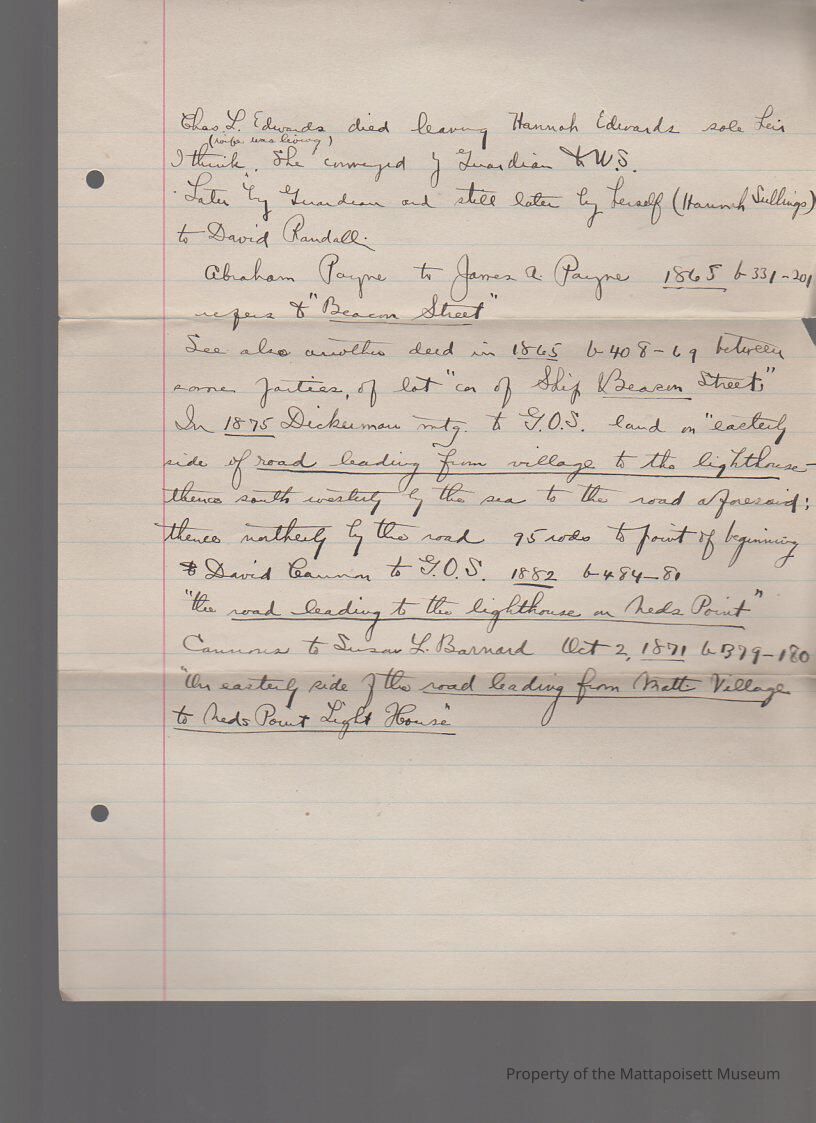 Chas. L. Edwards died leaving Hannah Edwards sole heir
(wife was living)
I think. She conveyed by Guardian to W.S.
Later by Guardian and still later by herself (Hannah Sullings)
to David Randall.
Abraham Payne to James A. Payne 1865 b 331-201
refers to "Beacon Street"
See also another deed in 1865 b 408-69 between
same parties, of lot "cor of Ship & Beacon Street,"
In 1875 Dickerman mtg. to G.O.S. land on "easterly
side of road leading from village to the lighthouse-
thence south westerly by the sea to the road aforesaid;
thence northerly by the road 95 rods to point of beginning
David Cannon to G.O.S. 1882 b 484-81
"the road leading to the lighthouse on Neds Point"
Cannons to Susan L. Barnard Oct 2, 1871 b 379-180
"On easterly side of the road leading from Matt Village
to Neds Point Light House"
Property of the Mattapoisett Museum